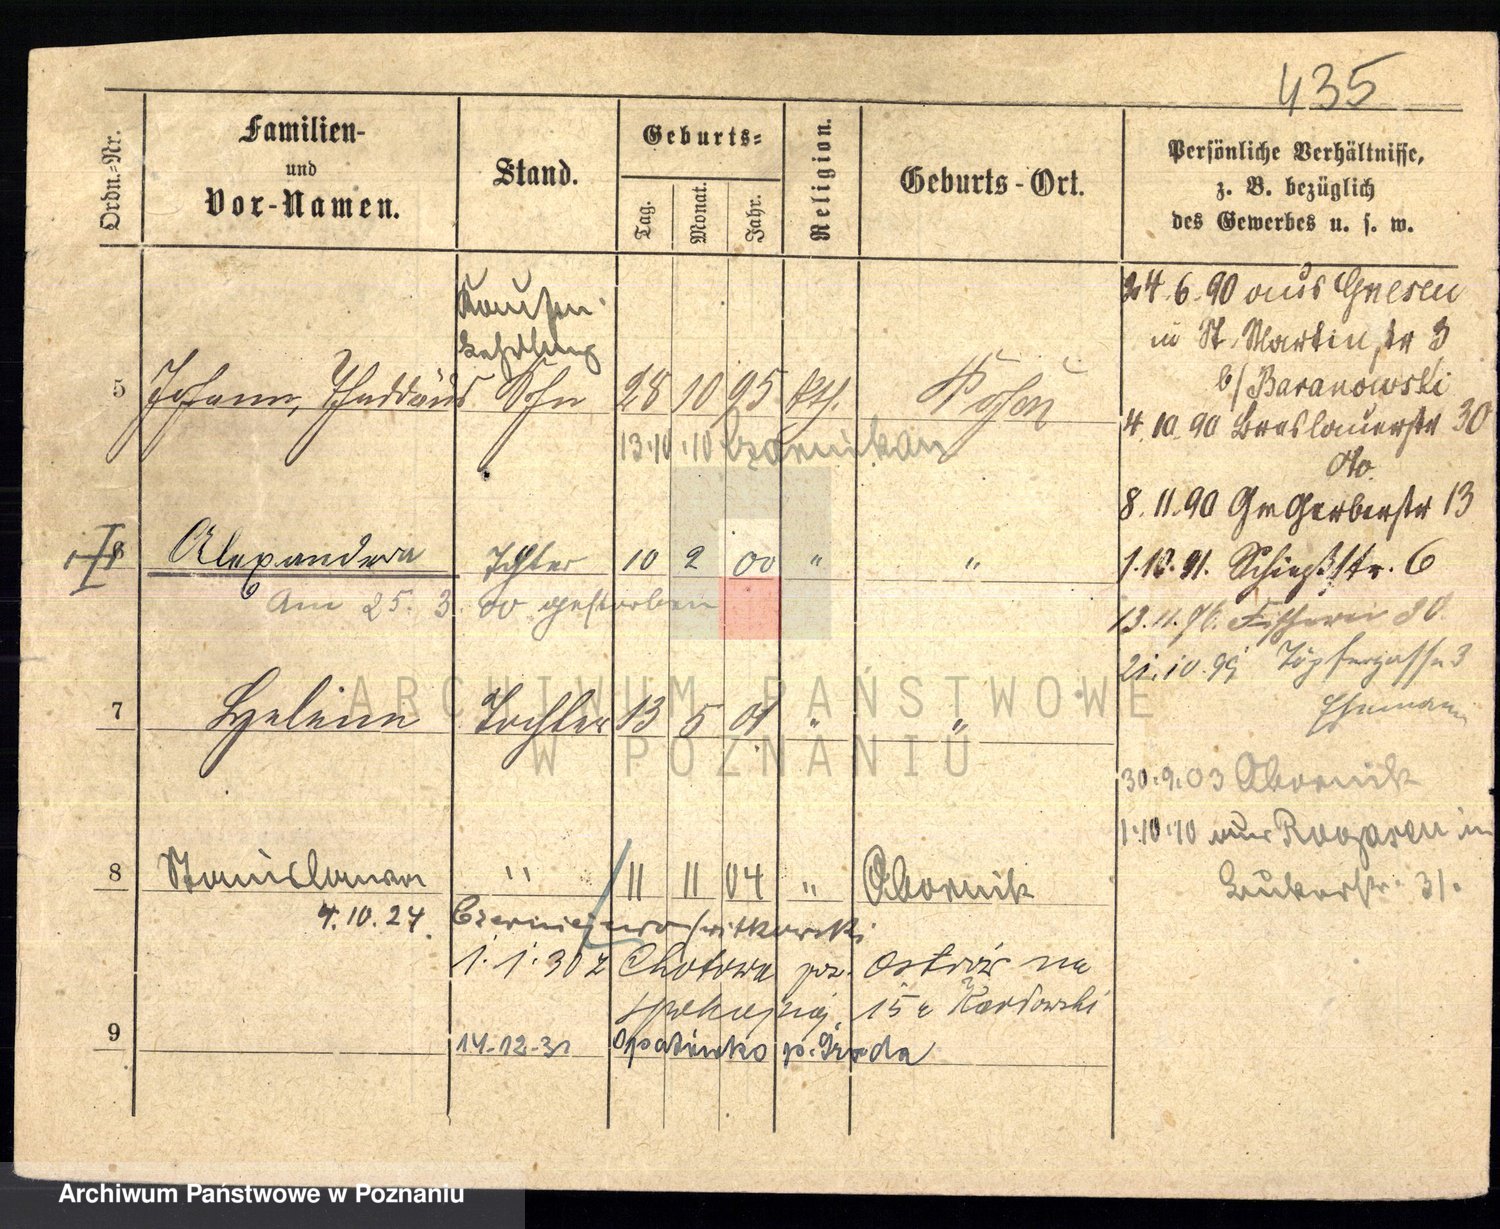 435
Ordn.-Nr.
Familien-
und
Vor-Namen.
Stand.
Geburts-
Tag.
Monat.
Jahr.
Religion.
Geburts-Ort.
Persönliche Verhältnisse,
z. B. bezüglich
des Gewerbes u. s. w.
5 Johann, Thaddäus Sohn 28 10 95 kth. Posen
13.10.10 Czarnikau
6 Alexandera Tochter 10 2 00 " "
am 25. 3. 00 gestorben
7 Helene Tochter 13 5 01 " "
8 Stanislawa " 11 11 04 " Obornik
4.10.24. Czerniejewo / witkowski
1.1.30 z Chotowa poz. Ostrów na
15 Kardowski
9
14.12.31 Opatówko p. Środa
24.6.90 aus Gnesen
in St. Martinstr 3
b/ Baranowski
4.10.90 Breslauerstr 30
do
8.11.90 Gr Gerberstr 13
1.12.91. Schießstr. 6
13.11.96. Fischerei 20.
21.10.99 Töpfergasse 3
Ehemann
30.9.03 Obornik
1.10.10 aus Rogasen in
31.
ARCHIWUM PAŃSTWOWE
W POZNANIU
Archiwum Państwowe w Poznaniu